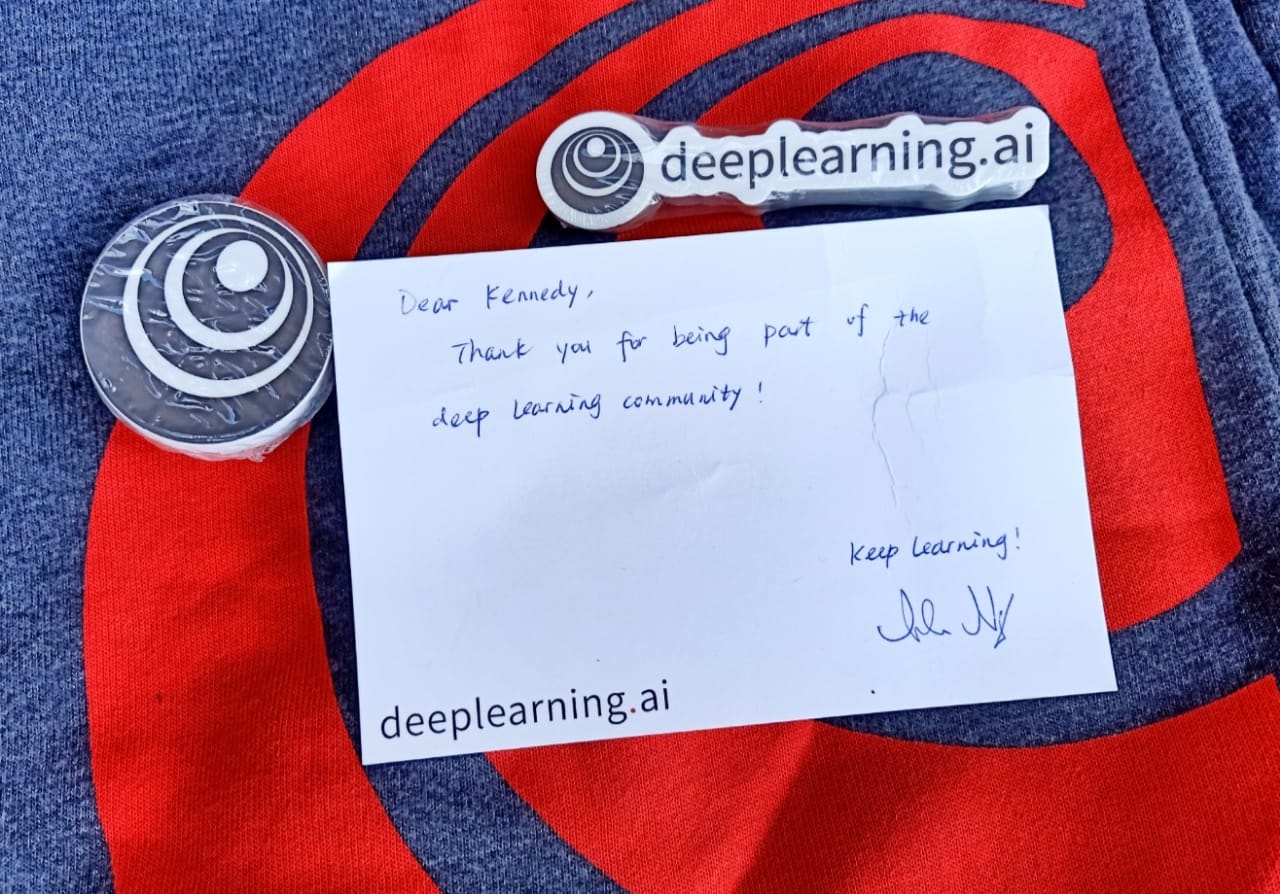 deeplearning.ai
Dear Kennedy,
Thank you for being part of the
deep learning community!
Keep learning!
deeplearning.ai